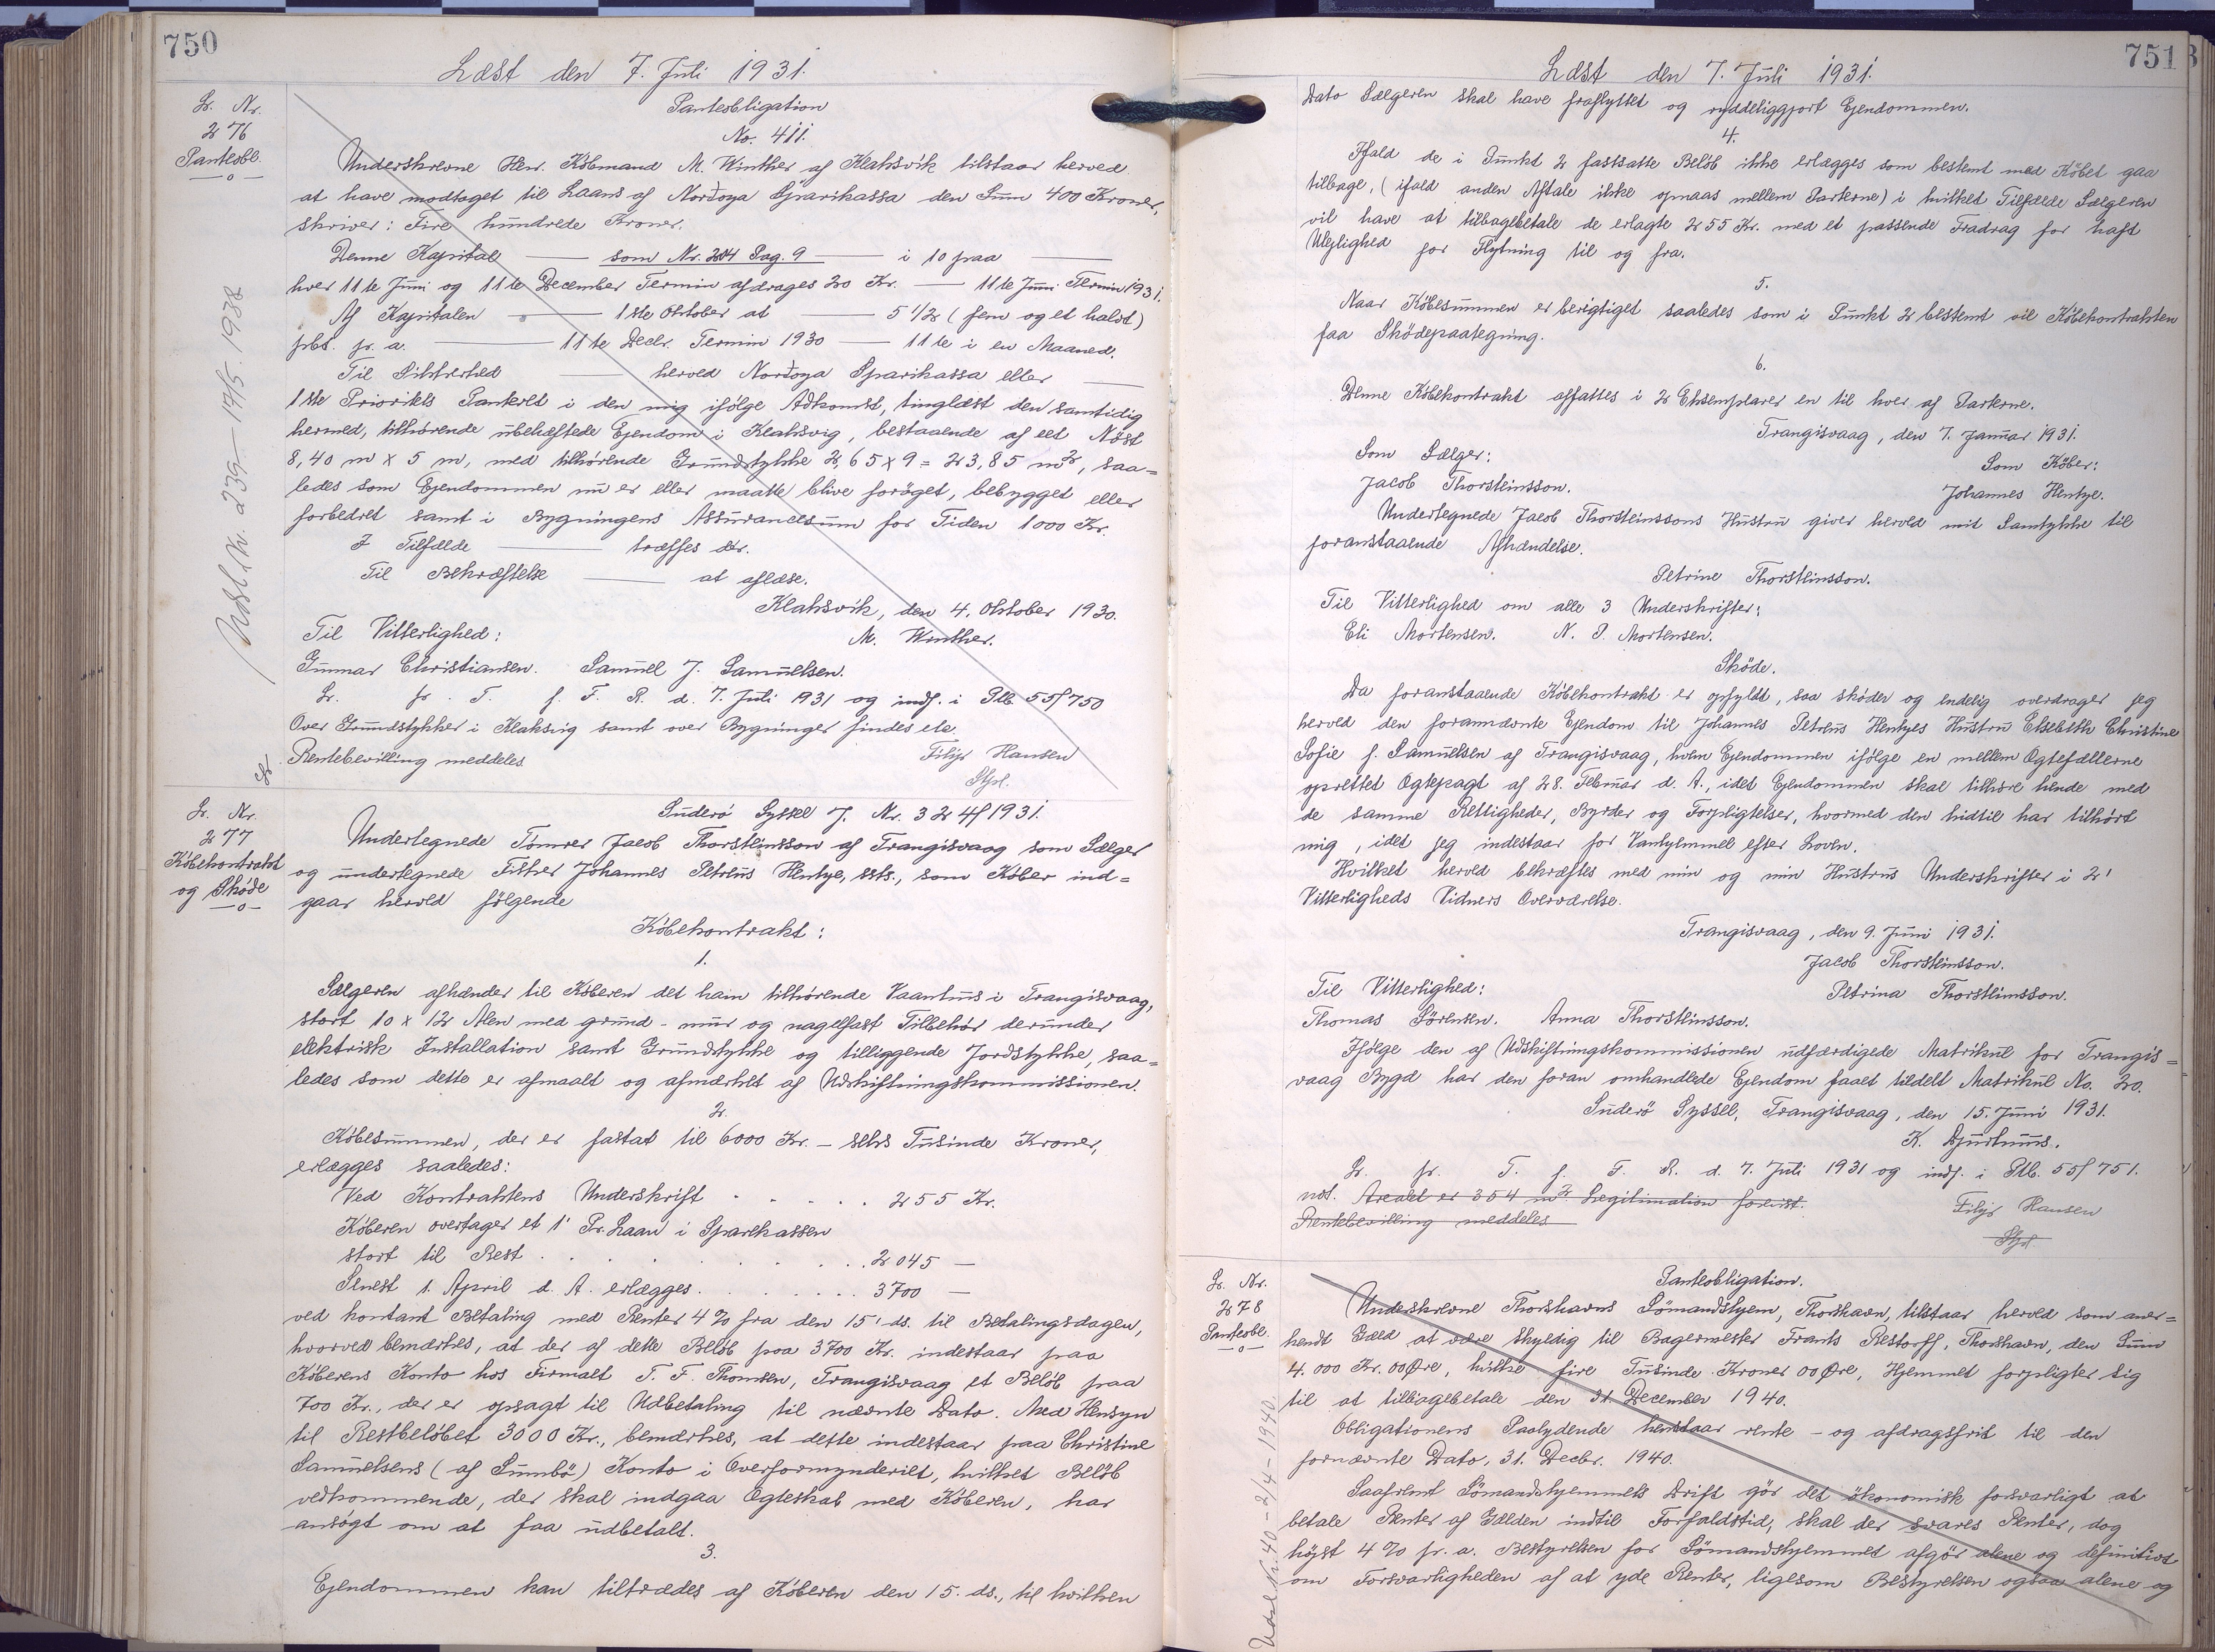 750
Læst den 7. Juli 1931.
Lr. Nr.
276
Panteobl.
Udsl. Nr. 235 - 14/5. 1938
Panteobligation
No. 411.
Underskrevne Herr. Købmand M. Winther af Klaksvik tilstaar herved
at have modtaget til Laans af Norđoya Sparikassa den Sum 400 Kroner,
skriver: Fire hundrede Kroner.
Denne Kapital —— som Nr. 204 Pag. 9 —— i 10 paa ——
hver 11te Juni og 11te December Termin afdrages 20 Kr. —— 11te Juni Termin 1931.
Af Kapitalen —— 1ste Oktober at —— 5 1/2 (fem og et halvt)
pct. pr. a. —— 11te Decbr. Termin 1930 —— 11te i en Maaned.
Til Sikkerhed —— herved Norđoya Sparikassa eller ——
1ste Prioritets Panteret i den mig ifølge Adkomst, tinglæst den samtidig
hermed, tilhørende ubehæftede Ejendom i Klaksvig, bestaaende af eet Nöst
8,40 m x 5 m, med tilhørende Grundstykke 2,65 x 9 = 23,85 m2, saa=
ledes som Ejendommen nu er eller maatte blive forøget, bebygget eller
forbedret samt i Bygningens Assurancesum for Tiden 1000 Kr.
I Tilfælde —— træffes der.
Til Bekræftelse —— at aflæse.
Klaksvik, den 4. Oktober 1930.
Til Vitterlighed: M. Winther.
Gunnar Christiansen. Samuel J. Samuelsen.
Lr. pr. T. f. F. R. d. 7. Juli 1931 og indf. i Ptb. 55f 750
Over Grundstykker i Klaksvig samt over Bygninger findes etc.
Rentebevilling meddeles Filip Hansen
Stfpl.
Lr. Nr.
277
Købekontrakt
og Skøde
Suderö Syssel J. Nr. 324f1931.
Undertegnede Tømrer Jacob Thorsteinsson af Trangisvaag som Sælger
og undertegnede Fisker Johannes Petrus Hentze, ssts., som Køber ind=
gaar herved følgende
Købekontrakt:
1.
Sælgeren afhænder til Køberen det ham tilhørende Vaanhus i Trangisvaag,
stort 10 x 12 Alen med grund- mur og nagelfast Tilbehør derunder
elektrisk Installation samt Grundstykke og tilliggende Jordstykke, saa=
ledes som dette er afmaalt og afmærket af Udskiftningskommissionen.
2.
Købesummen, der er fastat til 6000 Kr. - seks Tusinde Kroner,
erlægges saaledes:
Ved Kontraktens Underskrift . . . . . 255 Kr.
Køberen overtager et 1' Pr. Laan i Sparekassen
stort til Rest . . . . . . . . 2045 —
Senest 1. April d. A. erlægges . . . . . . 3700 —
ved kontant Betaling med Renter 4% fra den 15' ds. til Betalingsdagen,
hvorved bemærkes, at der af dette Beløb paa 3700 Kr. indestaar paa
Køberens Konto hos Firmaet T. F. Thomsen, Trangisvaag et Beløb paa
700 Kr., der er opsagt til Udbetaling til nævnte Dato. Med Hensyn
til Restbeløbet 3000 Kr., bemærkes, at dette indestaar paa Christine
Samuelsens (af Sumbö) Konto i Overformynderiet, hvilket Beløb
vedkommende, der skal indgaa Ægteskab med Køberen, har
ansøgt om at faa udbetalt.
3.
Ejendommen kan tiltrædes af Køberen den 15. ds., til hvilken
751
Læst den 7. Juli 1931.
Dato Sælgeren skal have fraflyttet og ryddeliggjort Ejendommen.
4.
Ifald de i Punkt 2 fastsatte Beløb ikke erlægges som bestemt med Købet gaa
tilbage, (ifald anden Aftale ikke opnaas mellem Parterne) i hvilket Tilfælde Sælgeren
vil have at tilbagebetale de erlagte 255 Kr. med et passende Fradrag for haft
Ulejlighed for Flytning til og fra.
5.
Naar Købesummen er berigtiget saaledes som i Punkt 2 bestemt vil Købekontrakten
faa Skødepaategning.
6.
Denne Købekontrakt affattes i 2 Eksemplarer en til hver af Parterne.
Trangisvaag, den 7. Januar 1931.
Som Sælger: Som Køber:
Jacob Thorsteinsson. Johannes Hentze.
Undertegnede Jacob Thorsteinssons Hustru giver herved mit Samtykke til
foranstaaende Afhændelse.
Petrine Thorsteinsson.
Til Vitterlighed om alle 3 Underskrifter:
Eli Mortensen. N. P. Mortensen.
Skøde.
Da foranstaaende Købekontrakt er opfyldt, saa skøder og endelig overdrager jeg
herved den forannævnte Ejendom til Johannes Petrus Hentzes Hustru Elsebeth Christine
Sofie f. Samuelsen af Trangisvaag, hvem Ejendommen ifølge en mellem Ægtefællerne
oprettet Ægtepagt af 28. Februar d. A., idet Ejendommen skal tilhøre hende med
de samme Rettigheder, Byrder og Forpligtelser, hvormed den hidtil har tilhørt
mig, idet jeg indestaar for Vanhjemmel efter Loven.
Hvilket herved bekræftes med min og min Hustrus Underskrifter i 2'
Vitterligheds Vidners Overværelse.
Trangisvaag, den 9. Juni 1931.
Jacob Thorsteinsson.
Til Vitterlighed: Petrina Thorsteinsson.
Thomas Sörensen. Anna Thorsteinsson.
Ifølge den af Udskiftningskommissionen udfærdigede Matrikul for Trangis=
vaag Bygd har den foran omhandlede Ejendom faaet tildelt Matrikul No. 20.
Suderö Syssel, Trangisvaag, den 15. Juni 1931.
K. Djurhuus.
Lr. pr. T. f. F. R. d. 7. Juli 1931 og indf. i Ptb. 55f 751.
not. Arealet er 354 m2. Legitimation forevist.
Rentebevilling meddeles Filip Hansen
Stfpl
Lr. Nr.
278
Panteobl.
Udsl. Nr. 40 - 2/4 - 1940.
Panteobligation.
Underskrevne Thorshavns Sømandshjem, Thorshavn, tilstaar herved som aner=
kendt Gæld at være skyldig til Bagermester Frants Restorff, Thorshavn, den Sum
4.000 Kr. 00 Øre, hvilke fire Tusinde Kroner 00 Øre, Hjemmet forpligter sig
til at tilbagebetale den 31. December 1940.
Obligationens Paalydende henstaar rente- og afdragsfrit til den
fornævnte Dato, 31. Decbr. 1940.
Saafremt Sømandshjemmets Drift gør det økonomisk forsvarligt at
betale Renter af Gælden indtil Forfaldstid, skal der svares Renter, dog
højst 4% pr. a. Bestyrelsen for Sømandshjemmet afgør alene og definitivt
om Forsvarligheden af at yde Renter, ligesom Bestyrelsen ogsaa alene og